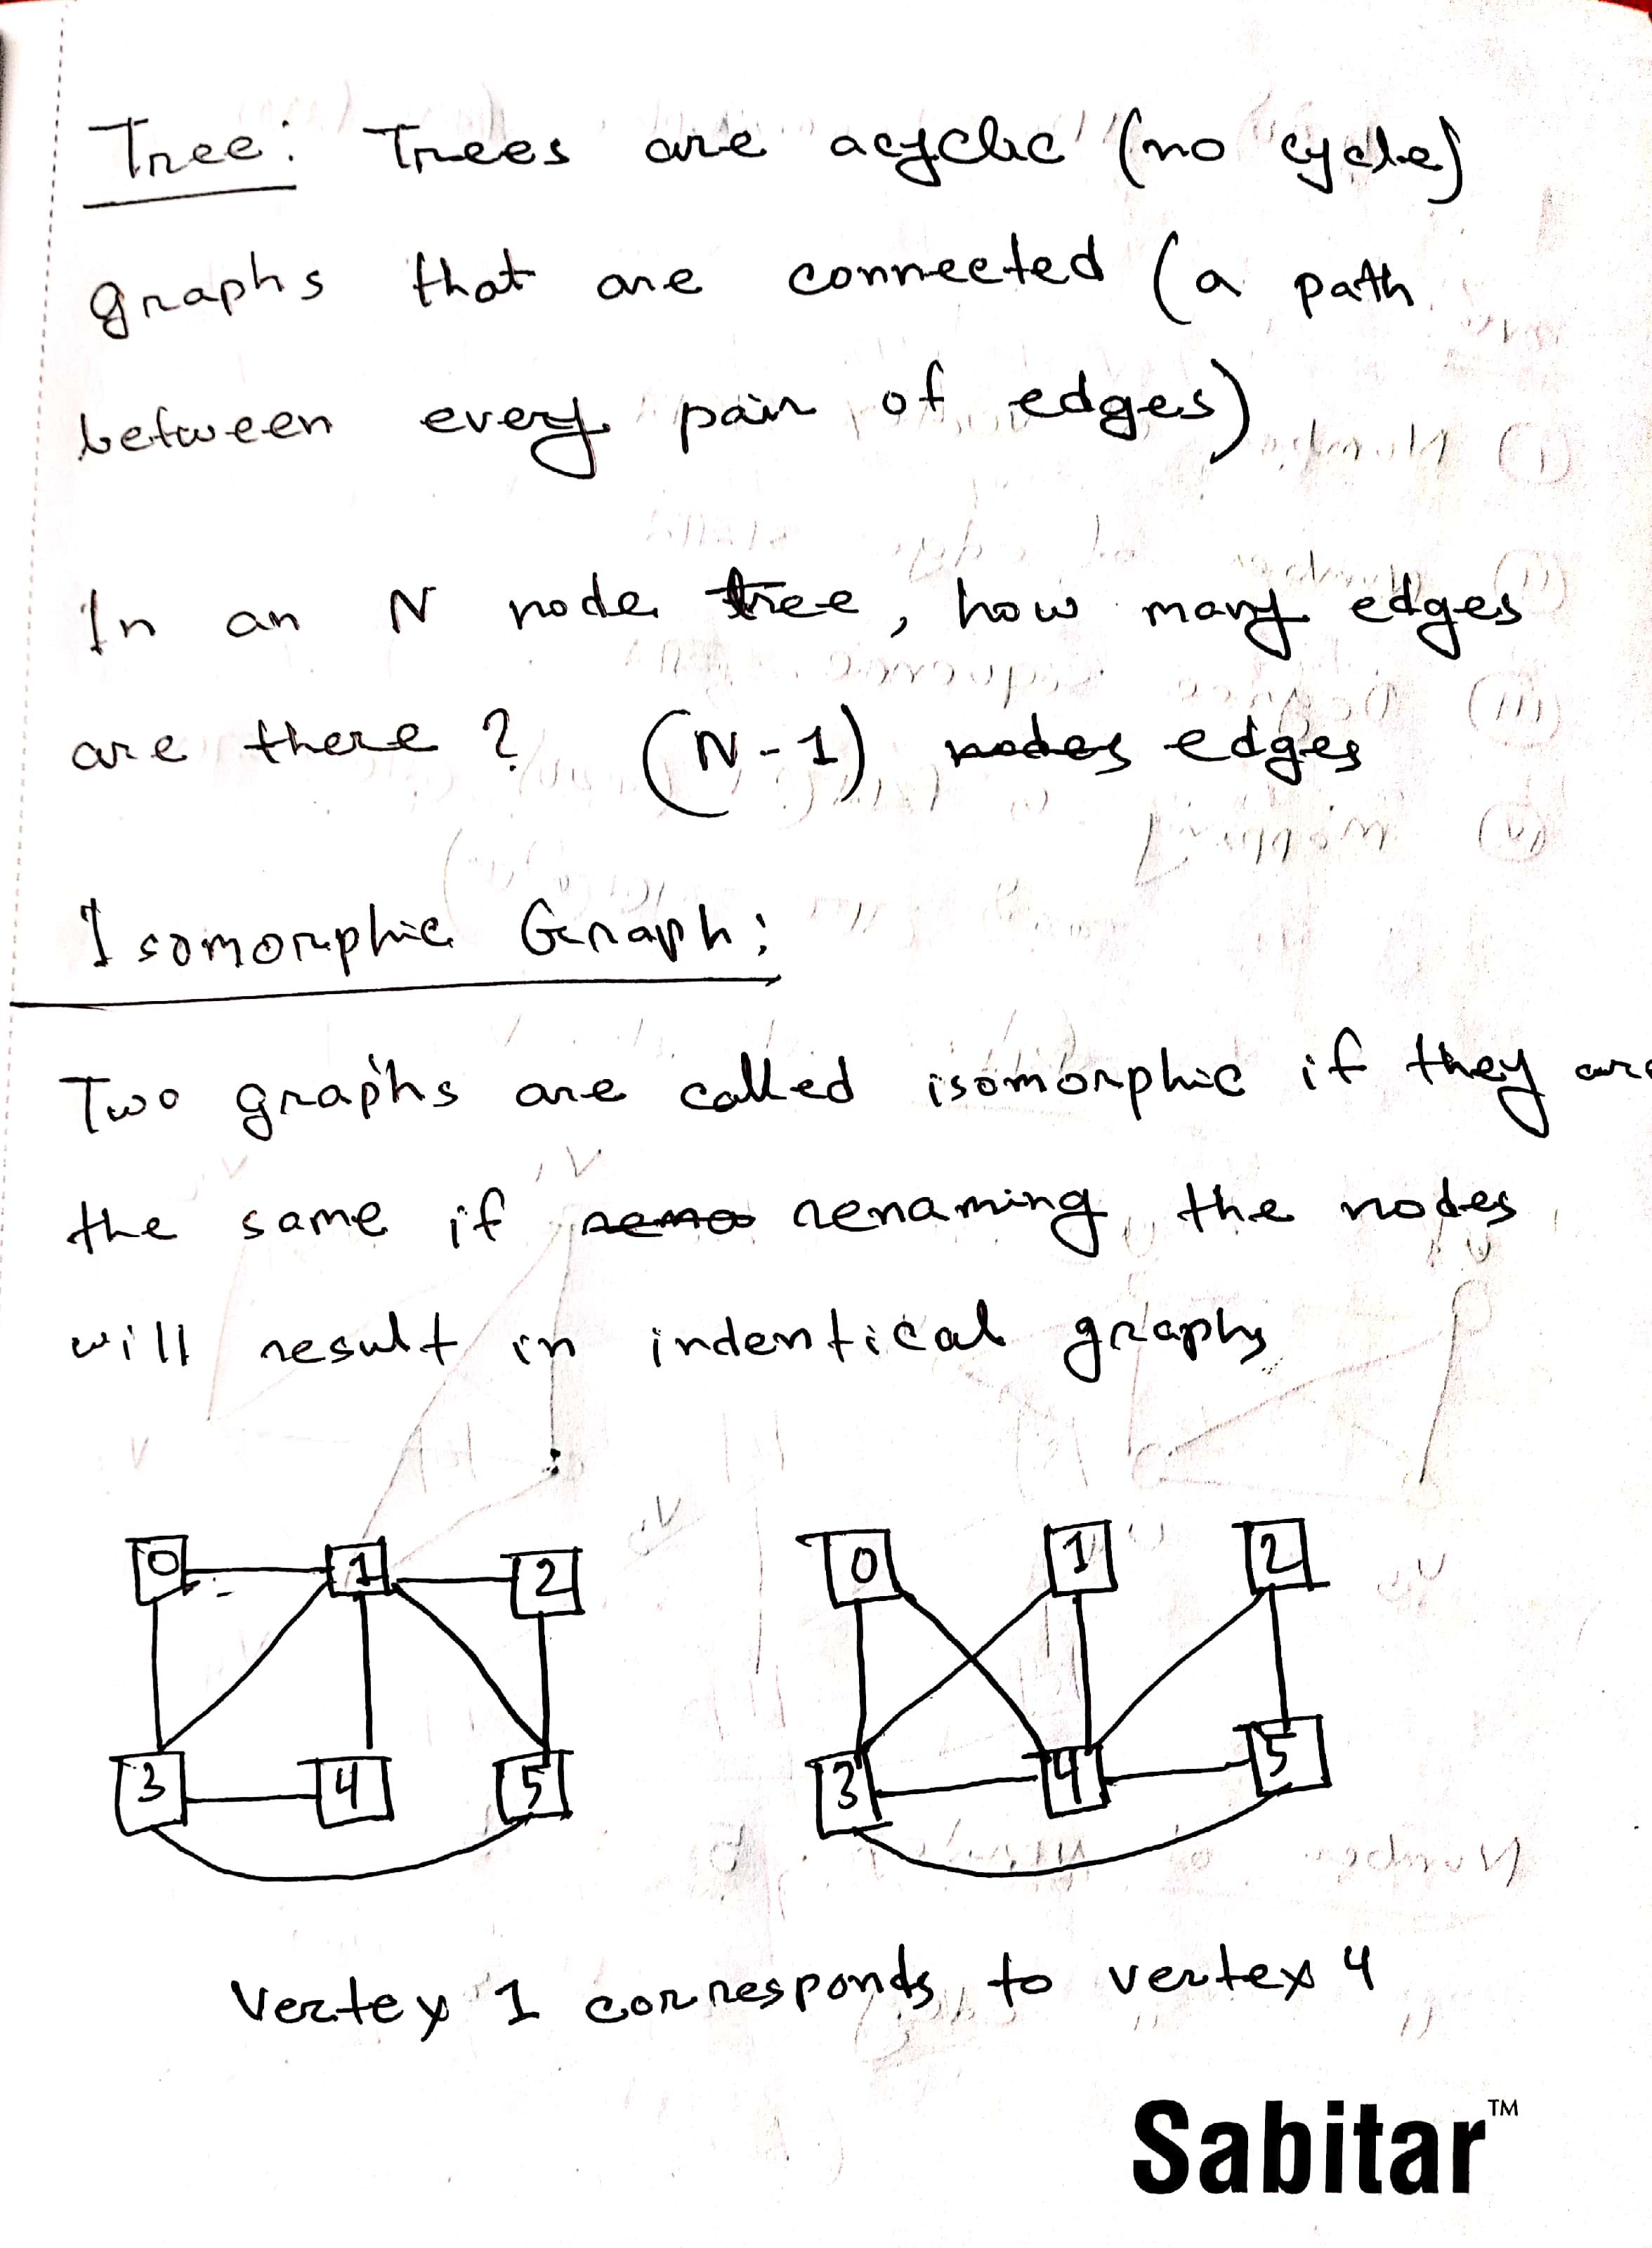 Tree: Trees are acyclic (no cycle)
graphs that are connected (a path
between every pair of edges)
In an N node tree, how many edges
are there ? (N-1) nodes edges
Isomorphic Graph:
Two graphs are called isomorphic if they are
the same if renaming the nodes
will result in indentical graphs
0 1 2 0 1 2
3 4 5 3 4 5
Vertex 1 corresponds to vertex 4
Sabitar™